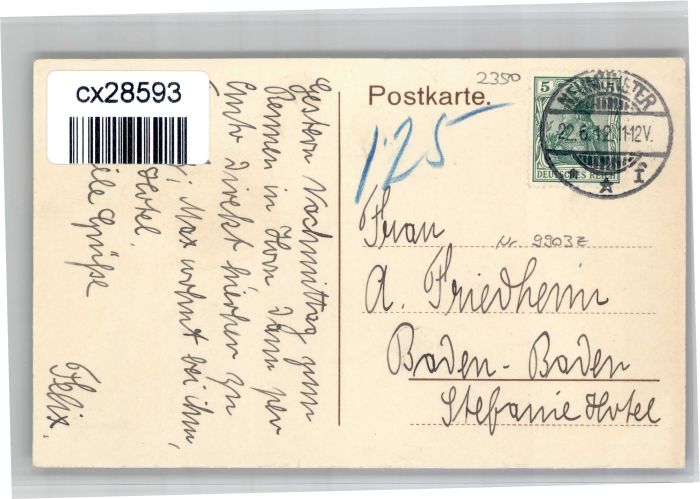 cx28593
Postkarte.
2350
1.25
5
NEUMÜNSTER
22.6.12.11-12V.
* f
DEUTSCHES REICH
Gestern Nachmittag zum
Rennen in Horn dann per
Auto direkt hierher zu
Max wohnt bei ihm,
Hotel.
Grüße
Felix.
Frau
Nr. 9903Z
A. Friedheim
Baden-Baden
Stefanie Hotel